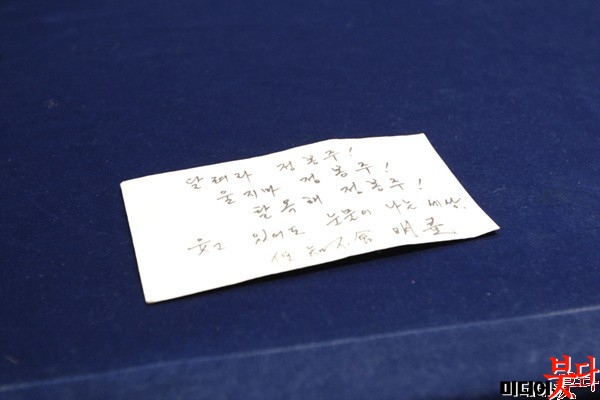 달려라 정봉주!
울지마 정봉주!
탈옥해 정봉주!
웃고 있어도 눈물이 나는 세상.
明呈
미디어
붓다